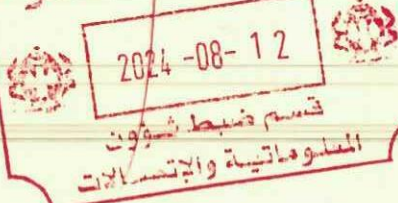 2024-08-12
قسم ضبط شؤون
المعلوماتية والإتصالات